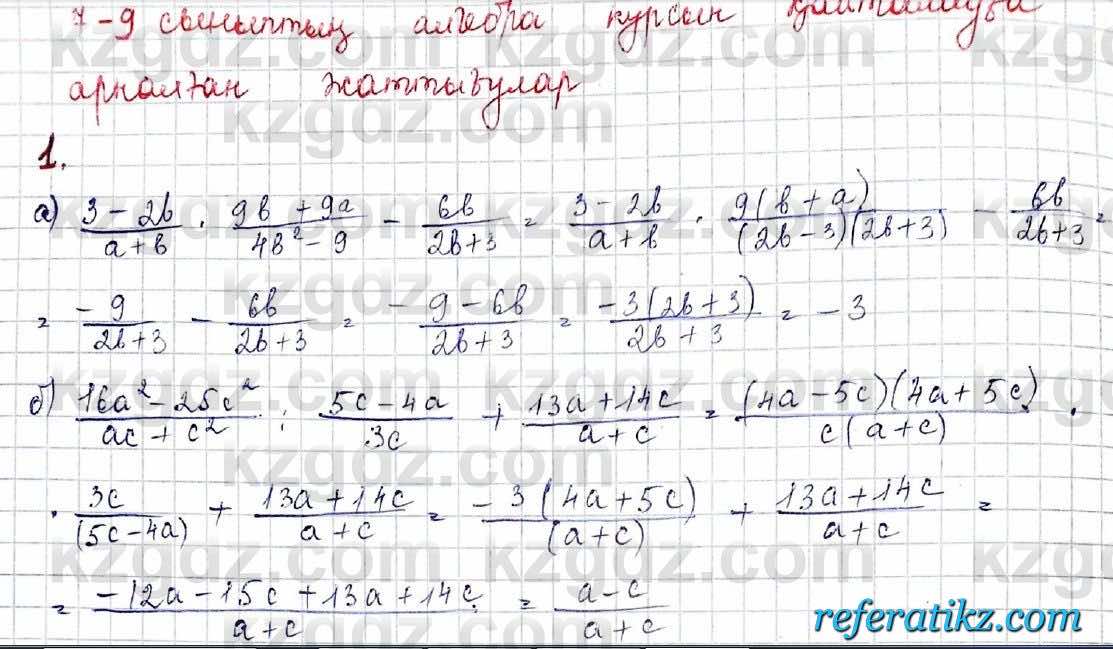 7-9 сыныптың алгебра курсын қайталауға
арналған жаттығулар
1.
а) (3 - 2b)/(a + b) · (9b + 9a)/(4b² - 9) - 6b/(2b + 3) = (3 - 2b)/(a + b) · 9(b + a)/((2b - 3)(2b + 3)) - 6b/(2b + 3) =
= -9/(2b + 3) - 6b/(2b + 3) = (-9 - 6b)/(2b + 3) = -3(2b + 3)/(2b + 3) = -3
б) (16a² - 25c²)/(ac + c²) : (5c - 4a)/3c + (13a + 14c)/(a + c) = (4a - 5c)(4a + 5c)/c(a + c) ·
· 3c/(5c - 4a) + (13a + 14c)/(a + c) = -3(4a + 5c)/(a + c) + (13a + 14c)/(a + c) =
= (-12a - 15c + 13a + 14c)/(a + c) = (a - c)/(a + c)
kzgdz.com
referatikz.com